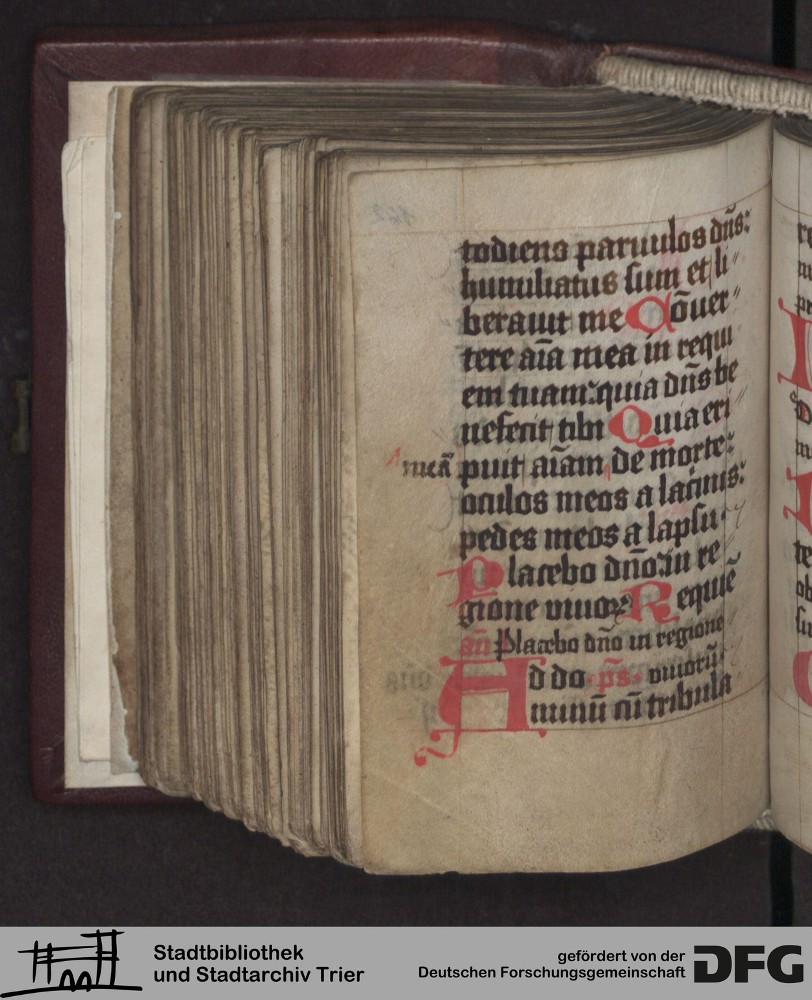 todiens paruulos dn̄s:
humiliatus sum et li
berauit me Cōuer
tere aīa mea in requi
em tuam: quia dn̄s be
nefecit tibi Quia eri
meā puit aīam de morte:
oculos meos a lacrimis:
pedes meos a lapsu
Placebo dn̄o: in re
gione viuoꝝ Requiē
an̄ Placebo dn̄o in regione
Ad do ps̄ viuorū
minū cū tribula
Stadtbibliothek
und Stadtarchiv Trier
gefördert von der
Deutschen Forschungsgemeinschaft
DFG